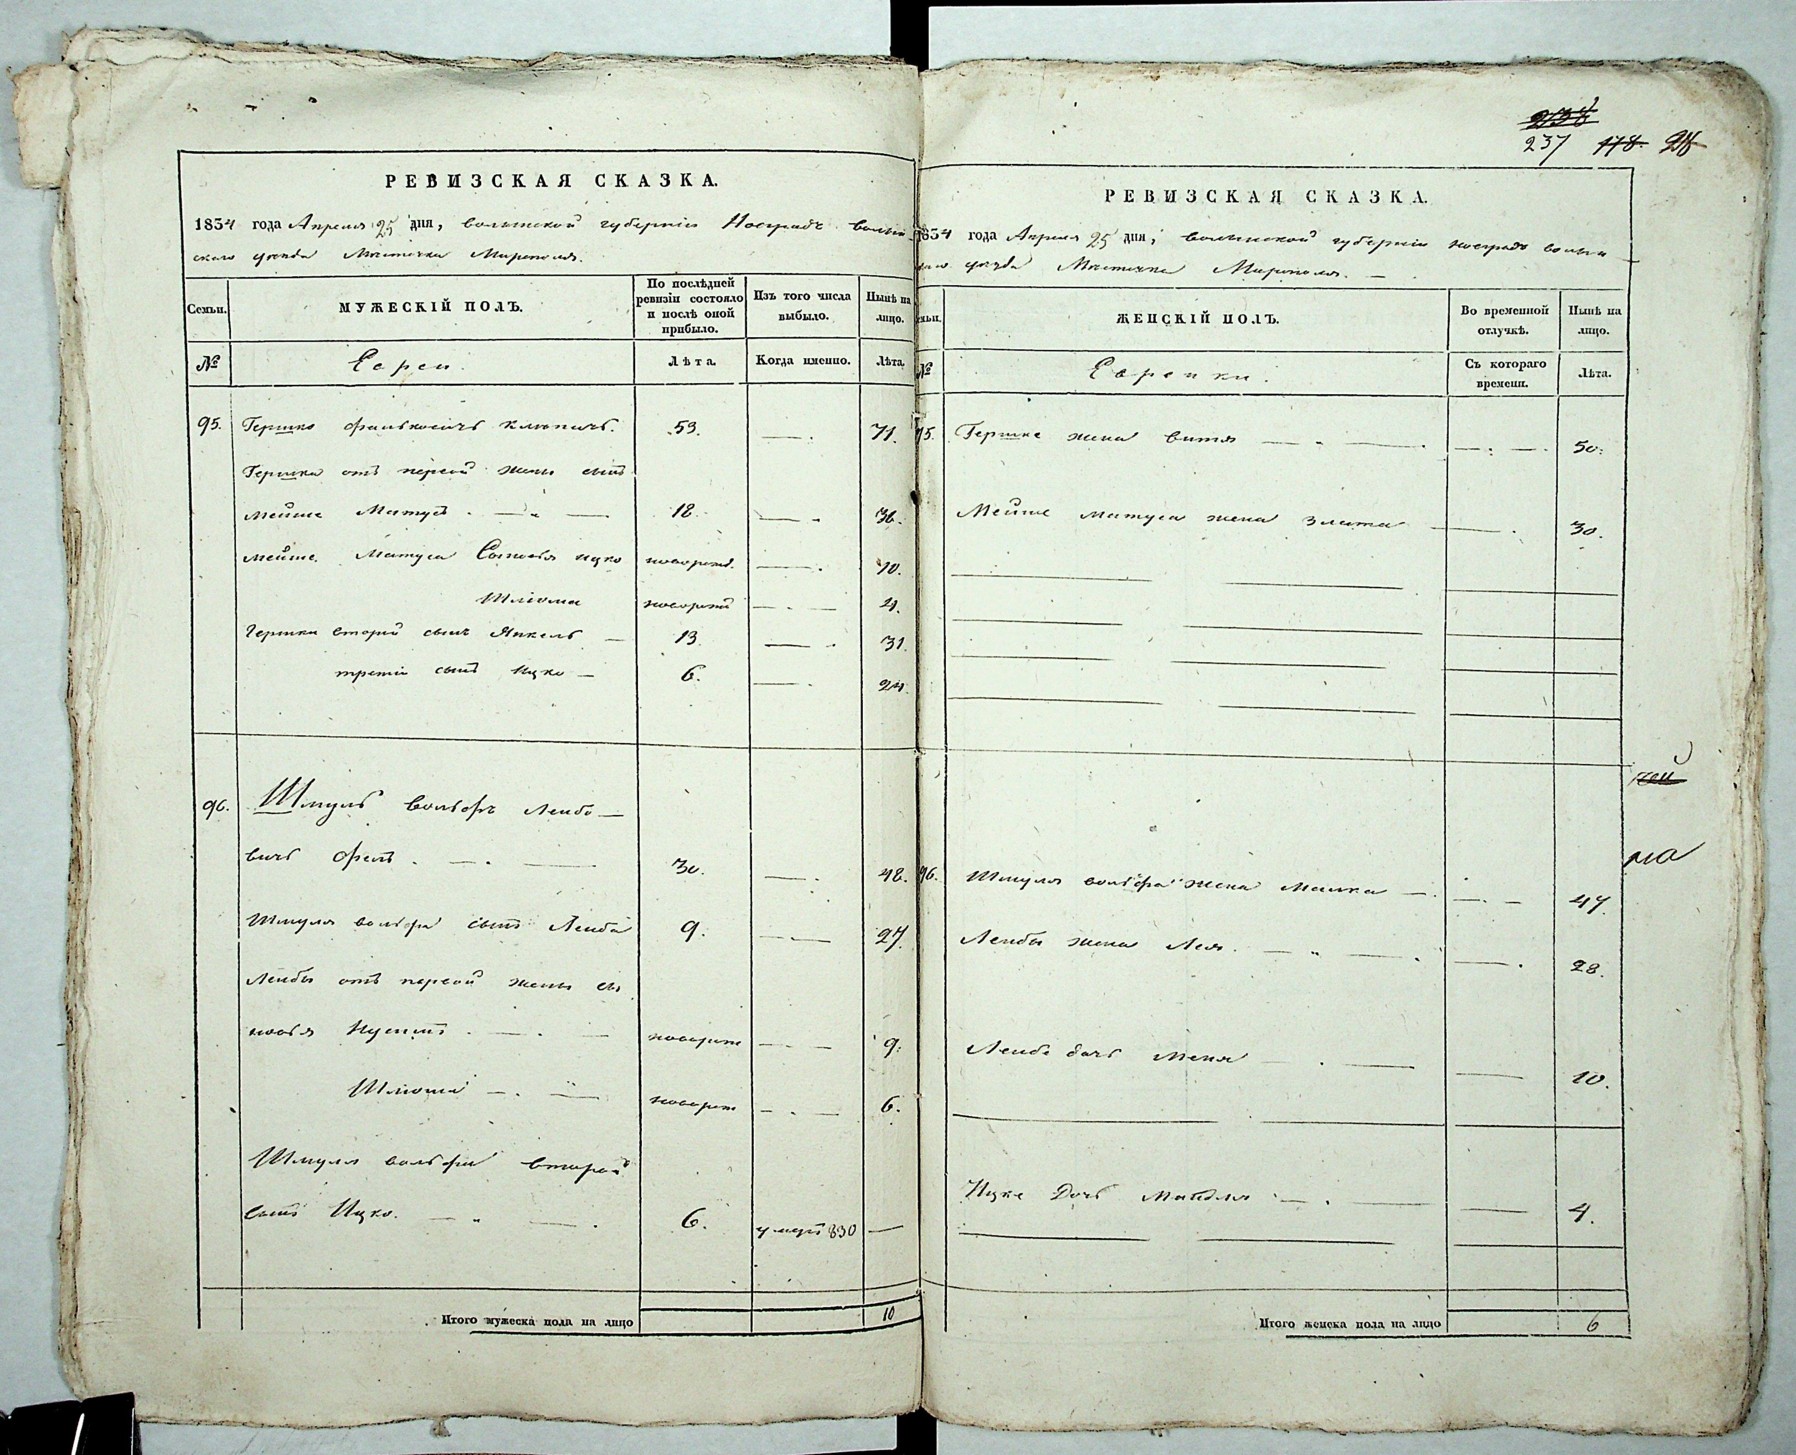 237
РЕВИЗСКАЯ СКАЗКА.
1834 года Апреля 25 дня, волынской губерніи Новградъ волын
скаго уезда Местечка Мирополя.
Семьи.
МУЖЕСКІЙ ПОЛЪ.
По послѣдней ревизіи состояло и послѣ оной прибыло.
Изъ того числа выбыло.
Нынѣ на лицо.
№
Евреи.
Лѣта.
Когда именно.
Лѣта.
95. Гершко Фалькосичъ 53. 71.
Гершка отъ первой жены сынъ
Мейше Матусъ 18. 36.
Мейше Матуса Сыновья Ицко новорож. 10.
Шлiома новорож 4.
Гершки вторый сынъ Янкель 13. 31.
третiй сынъ Ицко 6. 24.
96. Шмуль Вольфъ Леибо
вичъ 30. 48.
Шмуля вольфа сынъ Леиба 9. 27.
Леибы отъ первой жены сы
новья новорож 9.
новорож 6.
Шмуля вольфа второй
сынъ Ицко. 6. умеръ 830
Итого мужеска пола на лицо 10
РЕВИЗСКАЯ СКАЗКА.
1834 года Апреля 25 дня, волынской губерніи новградъ волын
скаго уезда Местечка Мирополя.
Семьи.
ЖЕНСКІЙ ПОЛЪ.
Во временной отлучкѣ.
Нынѣ на лицо.
№
Еврейки.
Съ котораго времени.
Лѣта.
95. Гершке жена витя 50.
Мейше матуса жена Злата 30.
96. Шмуля вольфа жена Малка 47.
Леибы жена Лея. 28.
Леибе дочь Меня 10.
Ицке Дочь 4.
Итого женска пола на лицо 6